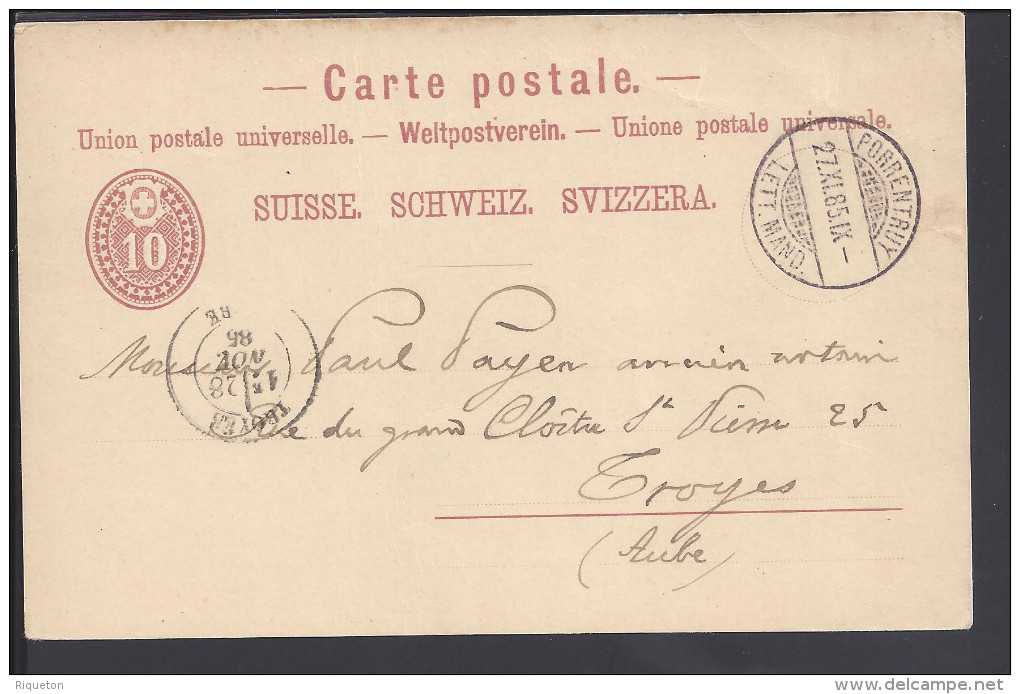 — Carte postale. —
Union postale universelle. — Weltpostverein. — Unione postale universale.
SUISSE. SCHWEIZ. SVIZZERA.
10
PORRENTRUY
27.XI.85.IX–
LETT. MAND.
TROYES
1E
28
NOV
85
Monsieur Paul Payen ancien notaire
Rue du grand Cloître St Pierre 25
Troyes
(Aube)
Riqueton
delcampe.net